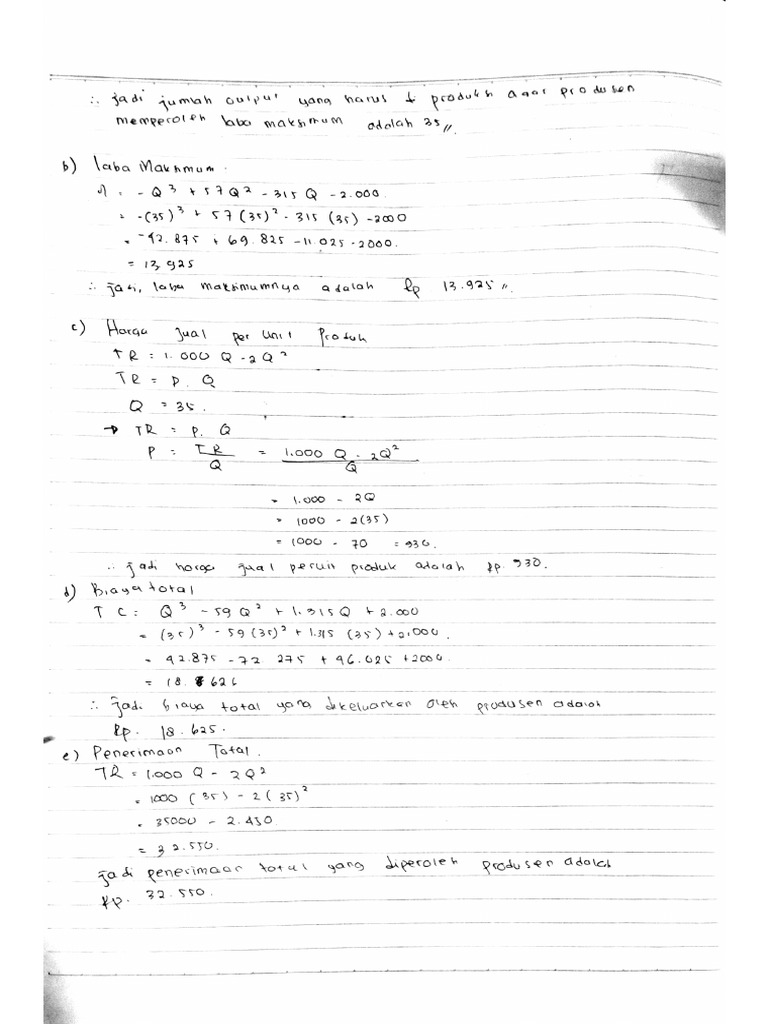 ∴ jadi jumlah output yang harus di produksi agar produsen
memperoleh laba maksimum adalah 35 //
b) laba Maksimum.
π = - Q³ + 57Q² - 315 Q - 2.000.
= -(35)³ + 57 (35)² - 315 (35) - 2000
= -42.875 + 69.825 - 11.025 - 2000.
= 13,925
∴ jadi, laba maksimumnya adalah Rp 13.925 //.
c) Harga jual per unit Produk
TR = 1.000 Q - 2Q²
TR = P. Q
Q = 35.
→ TR = P. Q
P = TR/Q = 1.000 Q - 2Q²/Q
= 1.000 - 2Q
= 1000 - 2(35)
= 1000 - 70 = 930.
∴ jadi harga jual perunit produk adalah Rp. 930.
d) Biaya total
TC = Q³ - 59 Q² + 1.315Q + 2.000
= (35)³ - 59 (35)² + 1.315 (35) + 2.000.
= 42.875 - 72 275 + 46.025 + 2000.
= 18.626
∴ jadi biaya total yang dikeluarkan oleh produsen adalah
Rp. 18.625.
e) Penerimaan Total.
TR = 1.000 Q - 2Q²
= 1000 (35) - 2 (35)²
= 35000 - 2.450.
= 32.550.
jadi penerimaan total yang diperoleh produsen adalah
Rp. 32.550.